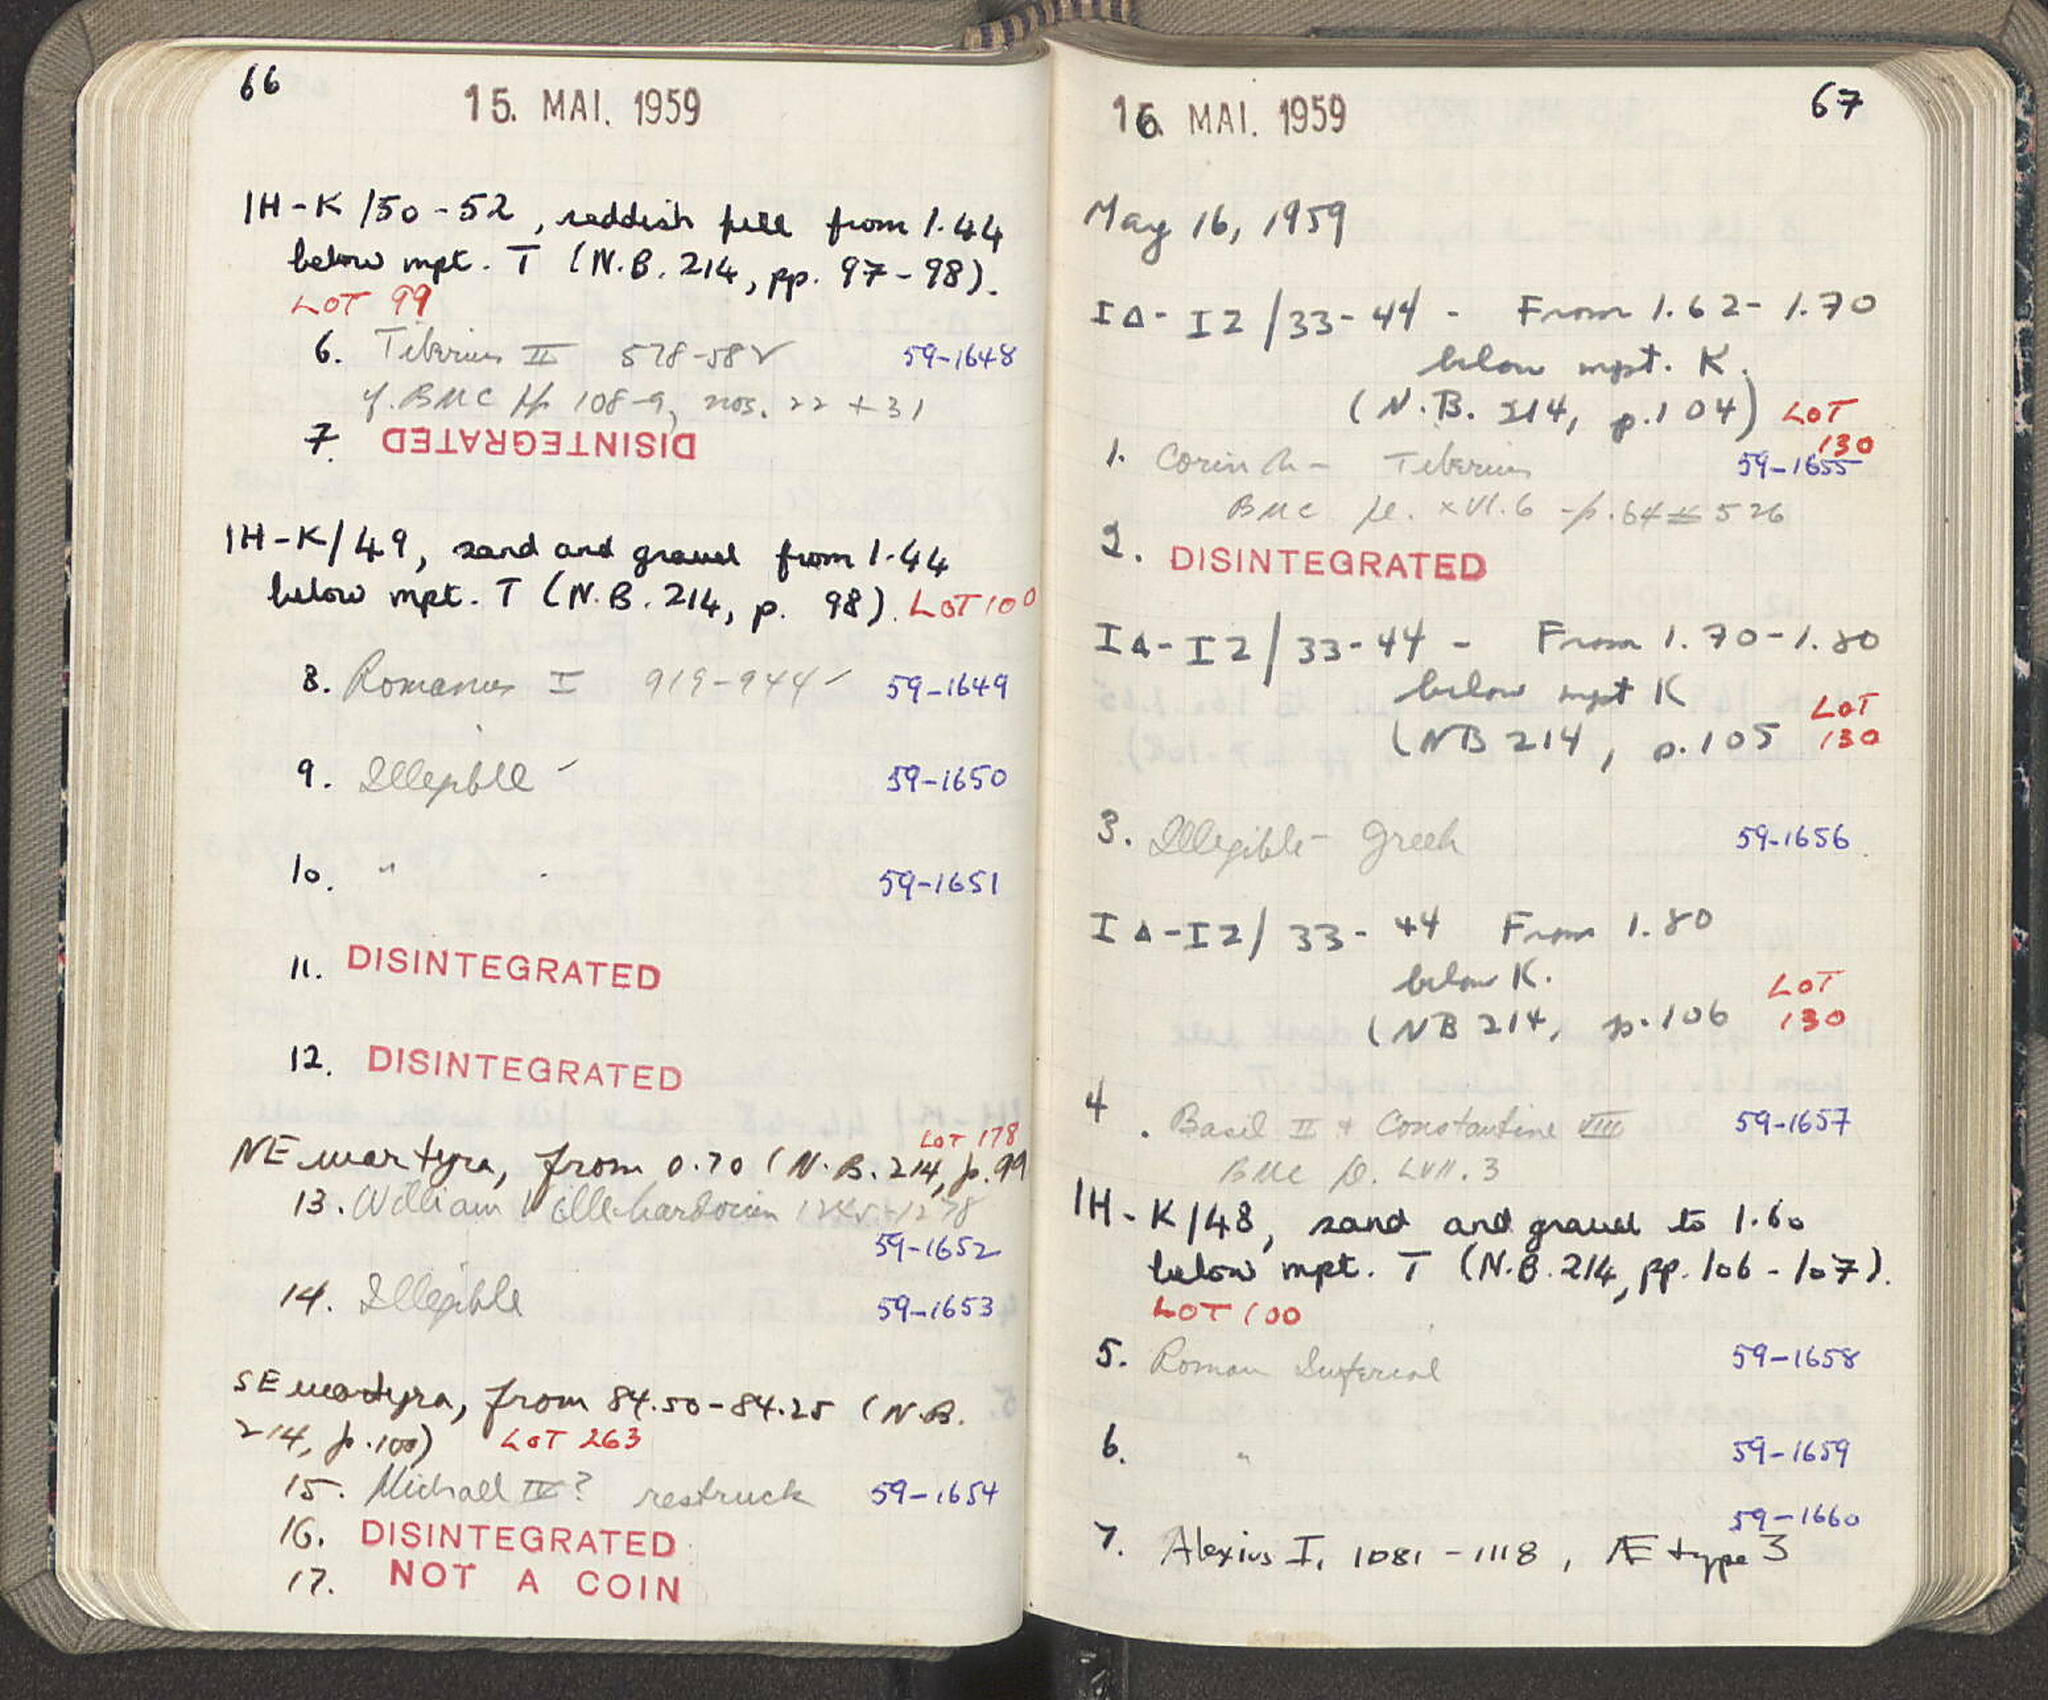 66
15. MAI. 1959
1H-K/50-52, reddish fill from 1.44
below mpt. T (N.B. 214, pp. 97-98).
LOT 99
6. Tiberius II 578-582 59-1648
cf. BMC pp 108-9, nos. 22 + 31
7. DISINTEGRATED
1H-K/49, sand and gravel from 1.44
below mpt. T (N.B. 214, p. 98). LOT 100
8. Romanus I 919-944 59-1649
9. Illegible 59-1650
10. " 59-1651
11. DISINTEGRATED
12. DISINTEGRATED
LOT 178
NE martyra, from 0.70 (N.B. 214, p. 99
13. William Villehardouin 1245-1278
59-1652
14. Illegible 59-1653
SE martyra, from 84.50-84.25 (N.B.
214, p. 100) LOT 263
15. Michael IV? restruck 59-1654
16. DISINTEGRATED
17. NOT A COIN
67
16. MAI. 1959
May 16, 1959
IΔ-IZ/33-44 - From 1.62-1.70
below mpt. K.
(N.B. 214, p. 104) LOT
130
1. Corinth - Tiberius 59-1655
BMC pl. XVI.6 - p. 64 526
2. DISINTEGRATED
IΔ-IZ/33-44 - From 1.70-1.80
below mpt K
(NB 214, p. 105 LOT
130
3. Illegible - Greek 59-1656
IΔ-IZ/33-44 From 1.80
below K.
(NB 214, p. 106 LOT
130
4. Basil II + Constantine VIII 59-1657
BMC pl. LVII.3
1H-K/48, sand and gravel to 1.60
below mpt. T (N.B. 214, pp. 106-107).
LOT 100
5. Roman Imperial 59-1658
6. " 59-1659
59-1660
7. Alexius I, 1081-1118, Æ type 3